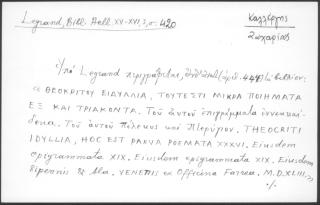 Legrand, Bibl. Hell. XV-XVI, 3, σ. 420
Καλλέργης
Ζαχαρίας
Ὑπό Legrand περιγράφεται, ὑπ' ἀριθ. 444, τό βιβλίον:
« ΘΕΟΚΡΙΤΟΥ ΕΙΔΥΛΛΙΑ, ΤΟΥΤΕΣΤΙ ΜΙΚΡΑ ΠΟΙΗΜΑΤΑ
ΕΞ ΚΑΙ ΤΡΙΑΚΟΝΤΑ. Τοῦ αὐτοῦ ἐπιγράμματα ἐννεακαί-
δεκα. Τοῦ αὐτοῦ Πέλεκυς καί Πτερύγιον. THEOCRITI
IDYLLIA, HOC EST PARVA POEMATA XXXVI. Eiusdem
epigrammata XIX. Eiusdem epigrammata XIX. Eiusdem
Bipennis & Ala. VENETIIS ex Officina Farrea. M.D.XLIII.»
·/.